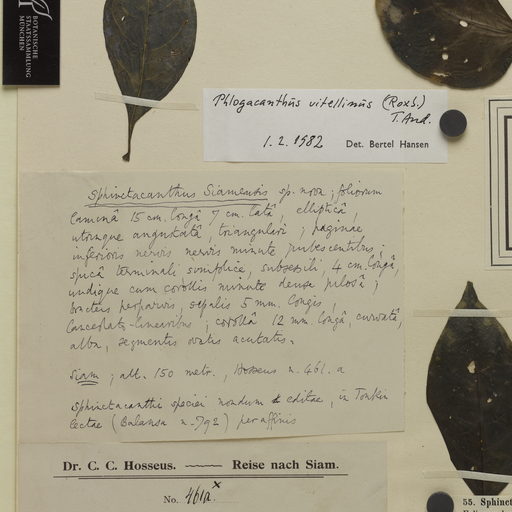 BOTANISCHE
STAATSSAMMLUNG
MÜNCHEN
Phlogacanthus vitellinus (Roxb.)
T. And.
1.2.1982 Det. Bertel Hansen
Sphinctacanthus Siamensis sp. nova; foliorum
laminâ 15 cm. longâ 7 cm. latâ, ellipticâ,
utrinque angustatâ, triangulari; paginae
inferioris nervis minute pubescentibus;
spicâ terminali simplice, subsessili, 4 cm. longâ,
undique cum corollis minute dense pilosâ;
bracteis perparvis, sepalis 5 mm. longis,
lanceolato-linearibus; corollâ 12 mm. longâ, curvatâ,
alba, segmentis ovatis acutatis.
Siam; alt. 150 metr., Hosseus n. 461. a
Sphinctacanthi speciei nondum editae, in Tonkin
lectae (Balansa n. 792) peraffinis
Dr. C. C. Hosseus. Reise nach Siam.
No. 461a x
55. Sphinct